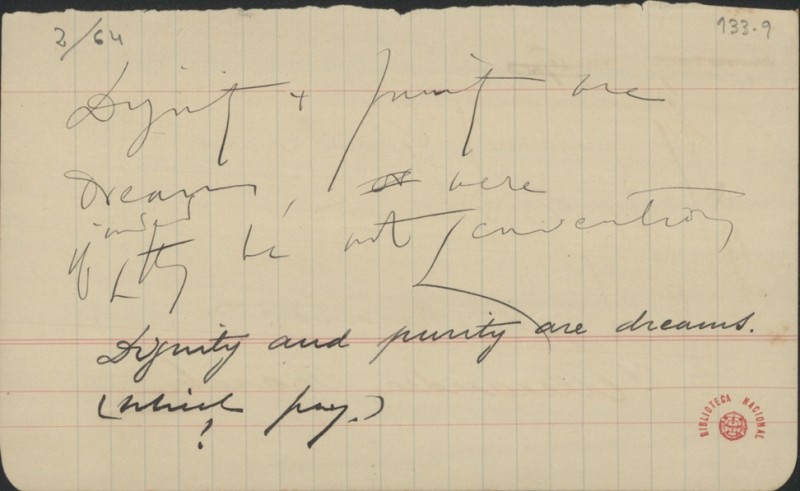 2/64
133-9
Dignity + purity are
dreams, or were
indeed
if they be not conventions
Dignity and purity are dreams.
(which pay.)
!
BIBLIOTECA NACIONAL